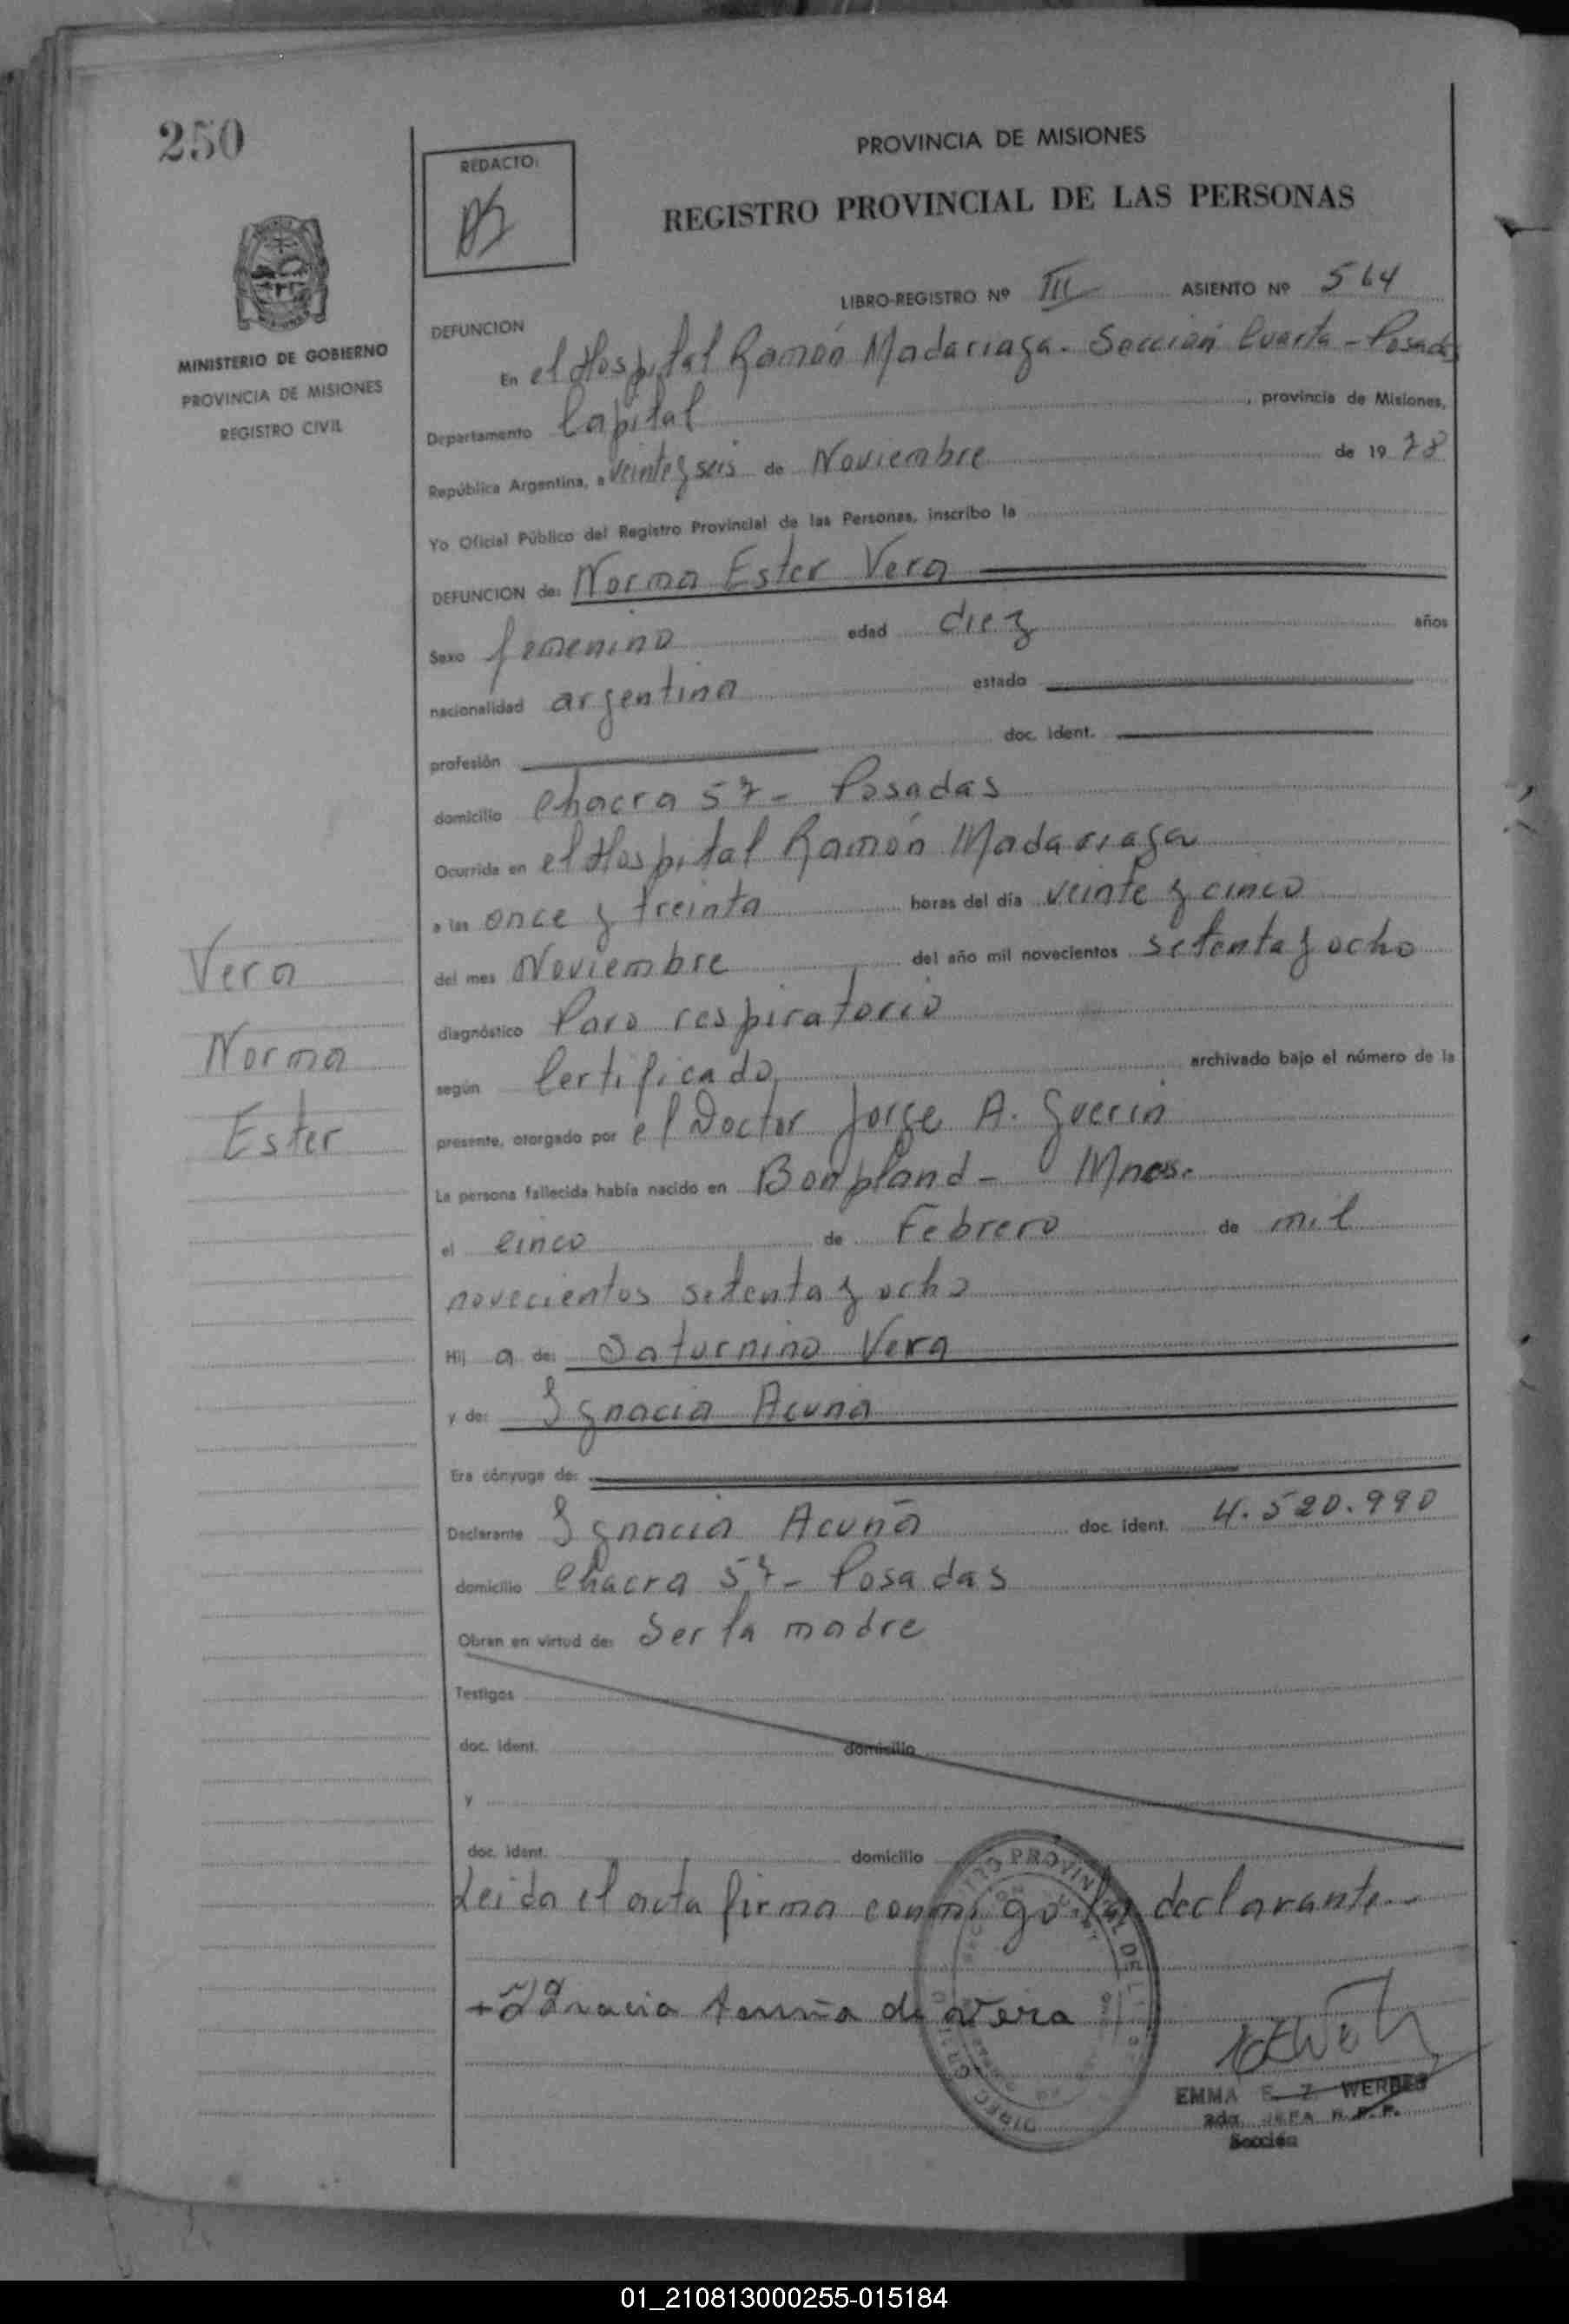 250
PROVINCIA DE MISIONES
REDACTO:
REGISTRO PROVINCIAL DE LAS PERSONAS
LIBRO-REGISTRO Nº III ASIENTO Nº 564
MINISTERIO DE GOBIERNO
PROVINCIA DE MISIONES
REGISTRO CIVIL
DEFUNCION
En el Hospital Ramón Madariaga. Sección Cuarta - Posadas
Departamento Capital, provincia de Misiones,
República Argentina, a veinte y seis de Noviembre de 1978
Yo Oficial Público del Registro Provincial de las Personas, inscribo la
DEFUNCION de: Norma Ester Vera
Sexo femenino edad diez años
nacionalidad argentina estado
profesión doc. ident.
domicilio Chacra 57 - Posadas
Ocurrida en el Hospital Ramón Madariaga
a las once y treinta horas del día veinte y cinco
del mes Noviembre del año mil novecientos setenta y ocho
diagnóstico Paro respiratorio
según Certificado archivado bajo el número de la
presente, otorgado por el Doctor Jorge A. Guerin
La persona fallecida había nacido en Bonpland - Mnes.
el cinco de Febrero de mil
novecientos setenta y ocho
Hij a de: Saturnino Vera
y de: Ignacia Acuña
Era cónyuge de:
Declarante Ignacia Acuña doc. ident. 4.520.990
domicilio Chacra 57 - Posadas
Obran en virtud de: Ser la madre
Testigos
doc. ident. domicilio
y
doc. ident. domicilio
Leida el acta firma conmigo la declarante.-
+ Ygnacia Acuña de Vera
Vera
Norma
Ester
EMMA E. Z. WERBES
JEFA R. P. P.
Sección
01_210813000255-015184